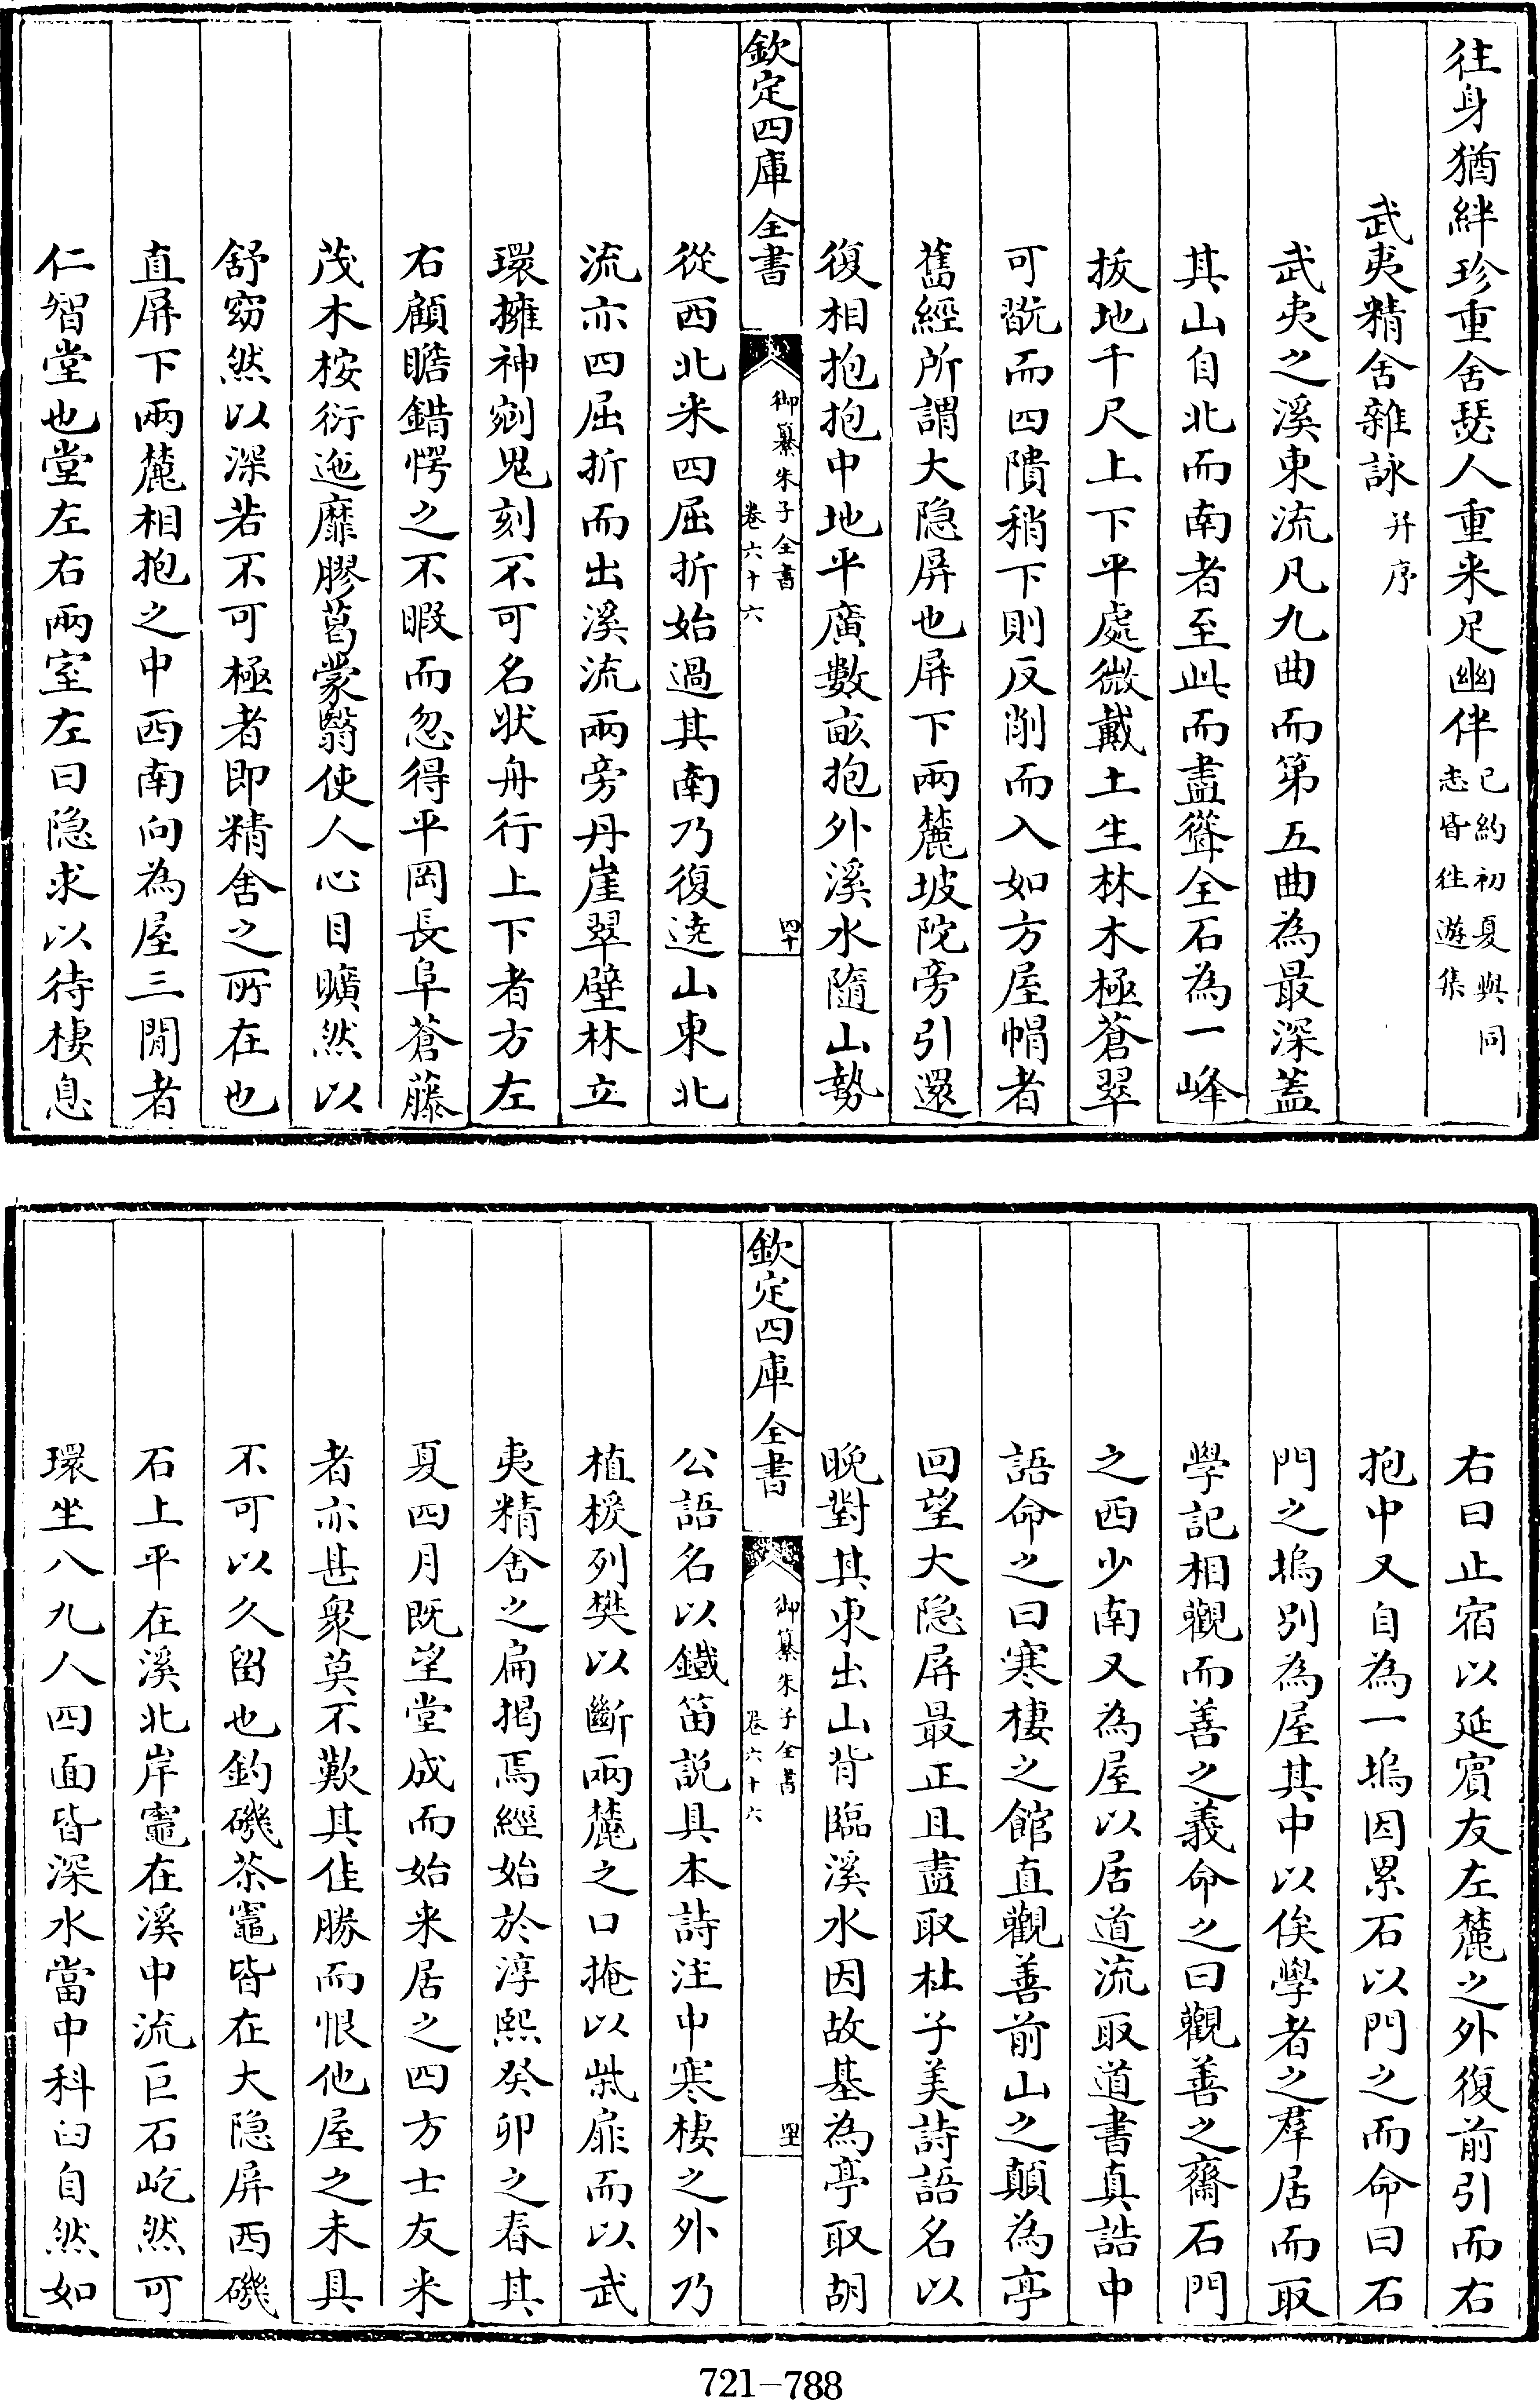 往身猶絆珍重舍瑟人重来足幽伴已約初夏與同志皆往遊集
武夷精舍雜詠并序
武夷之溪東流凡九曲而第五曲為最深蓋
其山自北而南者至此而盡聳全石為一峰
拔地千尺上下平處微戴土生林木極蒼翠
可翫而四隤稍下則反削而入如方屋帽者
舊經所謂大隐屏也屏下兩麓坡陀旁引還
復相抱抱中地平廣數畝抱外溪水隨山勢
欽定四庫全書
御纂朱子全書
卷六十六
四十
從西北来四屈折始過其南乃復遶山東北
流亦四屈折而出溪流兩旁丹崖翠壁林立
環擁神剜鬼刻不可名状舟行上下者方左
右顧瞻錯愕之不暇而忽得平岡長阜蒼藤
茂木桉衍迤靡膠葛蒙翳使人心目曠然以
舒窈然以深若不可極者即精舍之所在也
直屏下兩麓相抱之中西南向為屋三閒者
仁智堂也堂左右兩室左曰隐求以待棲息
右曰止宿以延賓友左麓之外復前引而右
抱中又自為一塢因累石以門之而命曰石
門之塢別為屋其中以俟學者之羣居而取
學記相觀而善之義命之曰觀善之齋石門
之西少南又為屋以居道流取道書真誥中
語命之曰寒棲之館直觀善前山之顛為亭
回望大隐屏最正且盡取杜子美詩語名以
晚對其東出山背臨溪水因故基為亭取胡
欽定四庫全書
御纂朱子全書
卷六十六
四十一
公語名以鐵笛説具本詩注中寒棲之外乃
植楥列樊以斷兩麓之口掩以柴扉而以武
夷精舍之扁揭焉經始於淳熙癸卯之春其
夏四月既望堂成而始来居之四方士友来
者亦甚衆莫不歎其佳勝而恨他屋之未具
不可以久留也釣磯茶竈皆在大隐屏西磯
石上平在溪北岸竈在溪中流巨石屹然可
環坐八九人四面皆深水當中科臼自然如
721-788